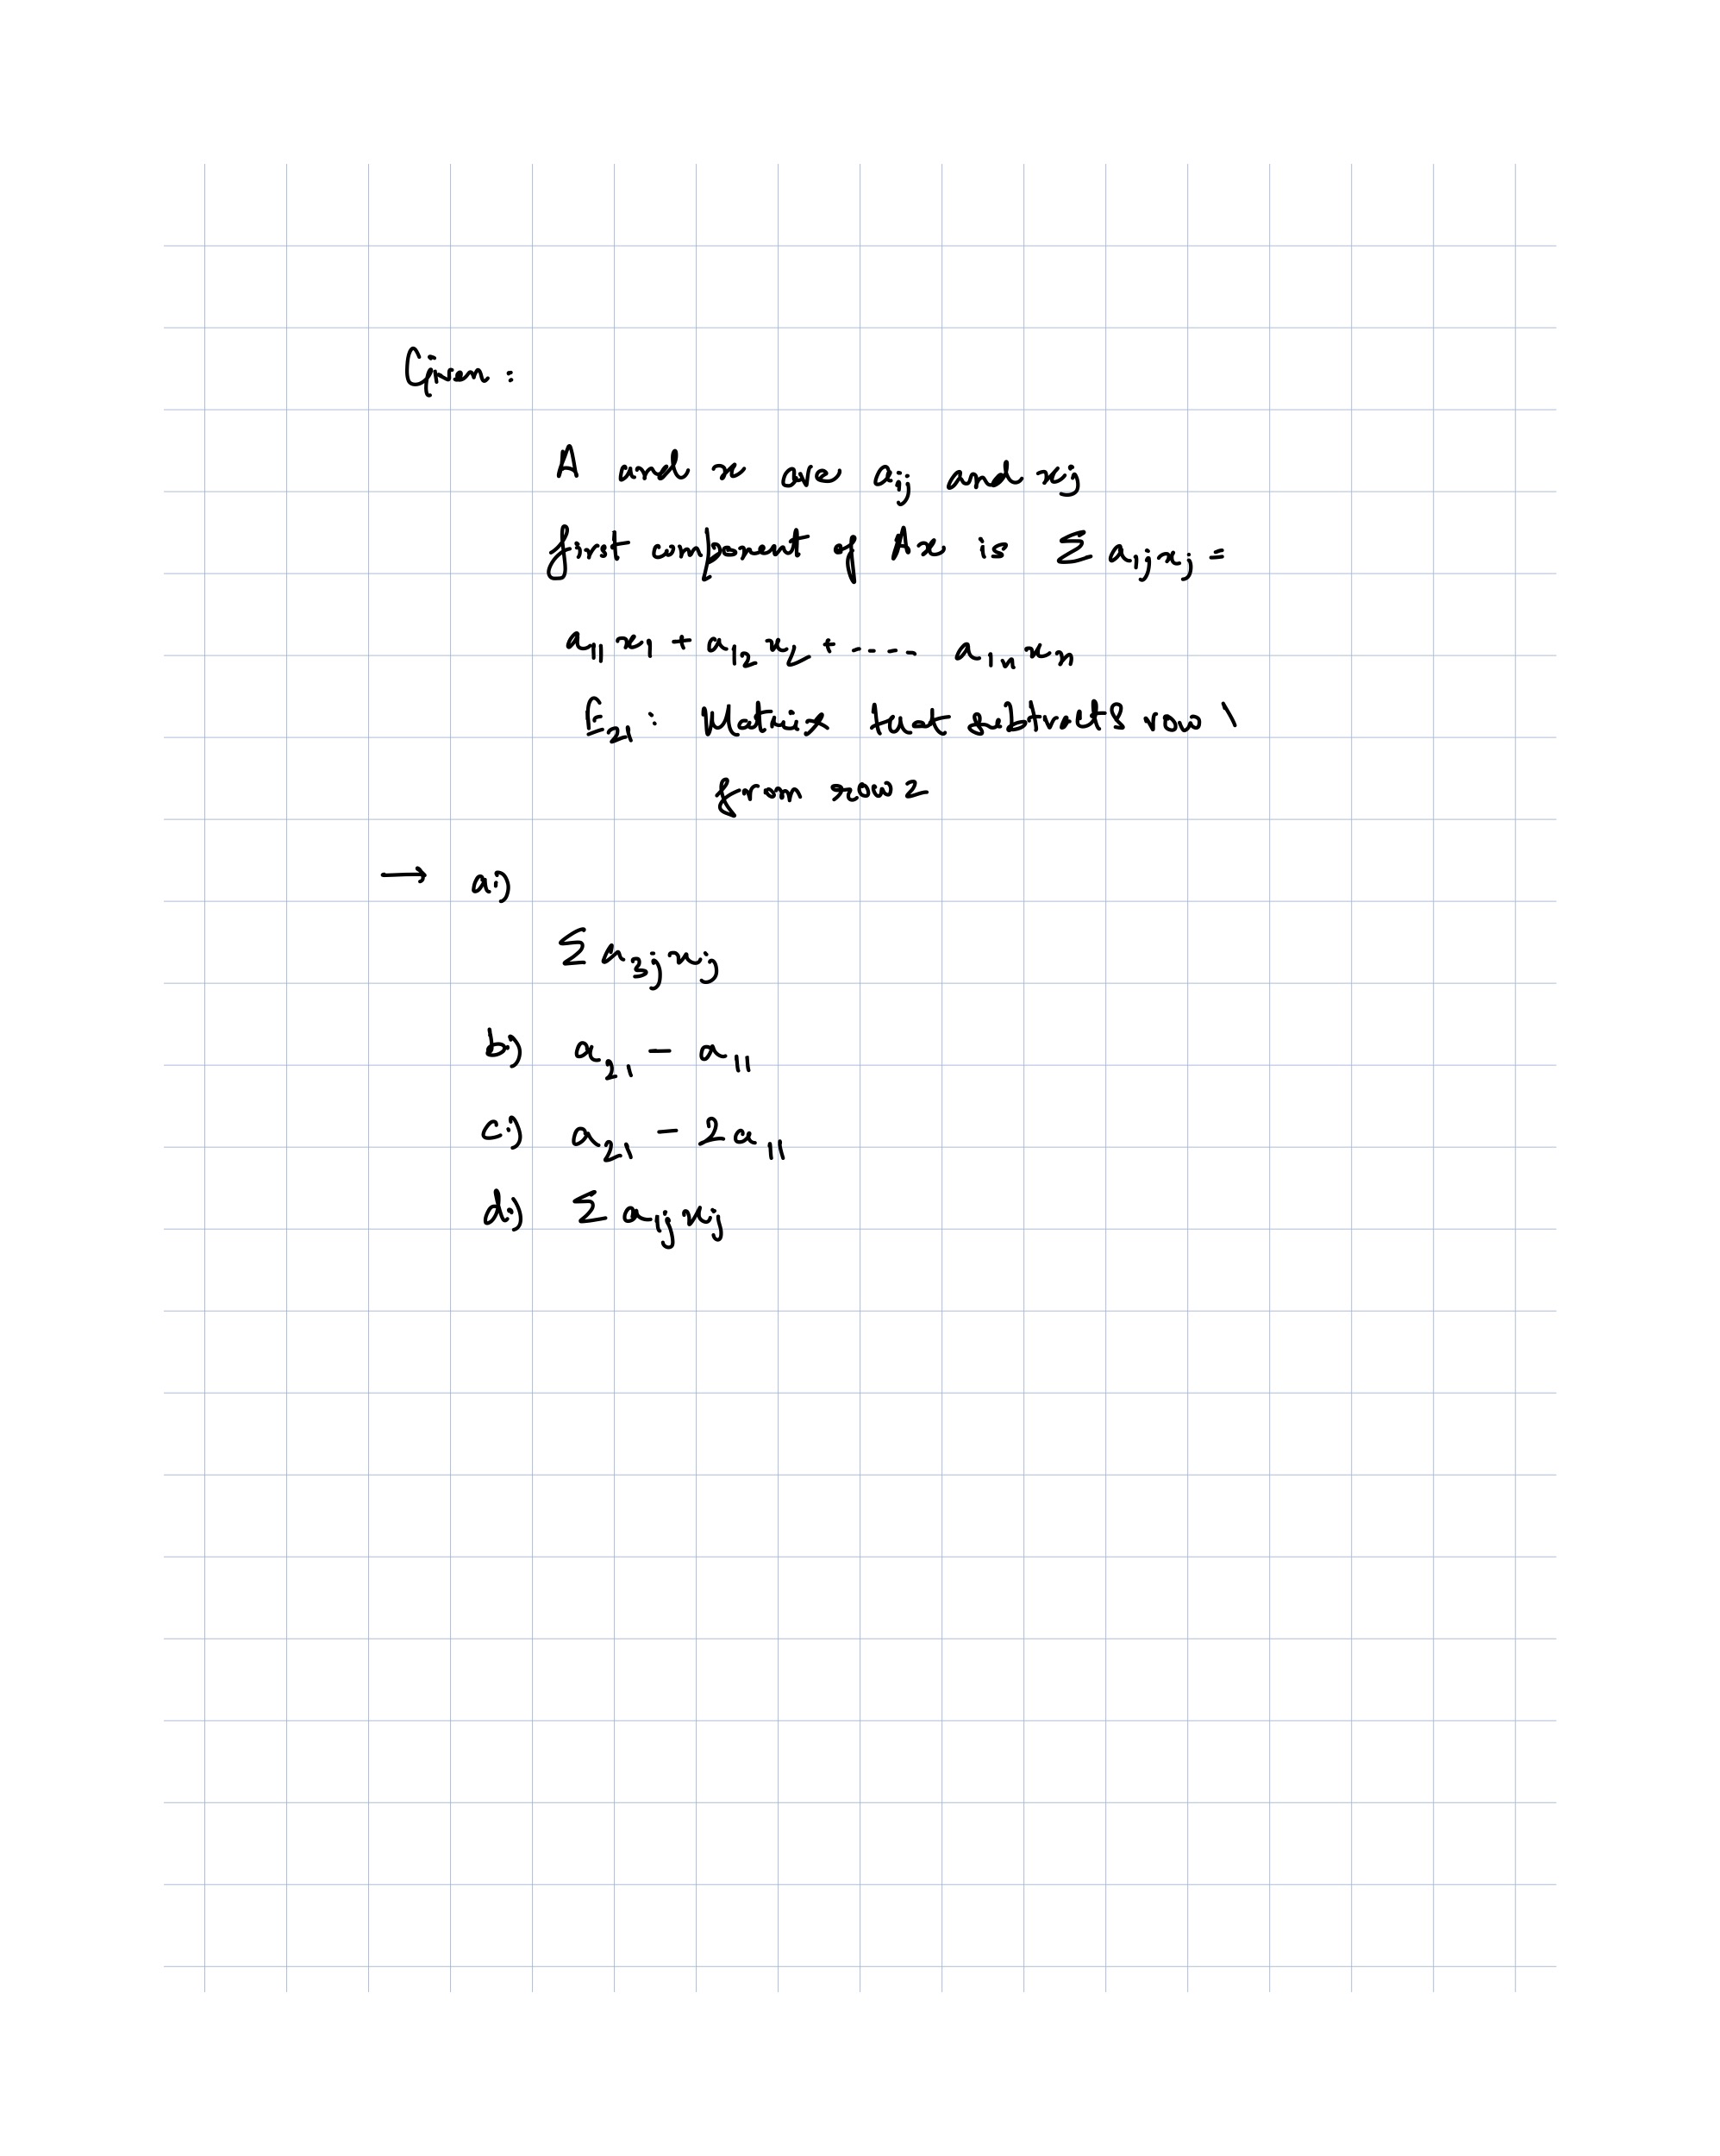 Given :
A and x are aij and xj
first component of Ax is Σ a1jxj =
a11 x1 + a12 x2 + ..... a1n xn
E21 : Matrix that subtracts row 1
from row 2
→ a:)
Σ a3j xj
b:) a21 - a11
c:) a21 - 2 a11
d:) Σ a1j xj